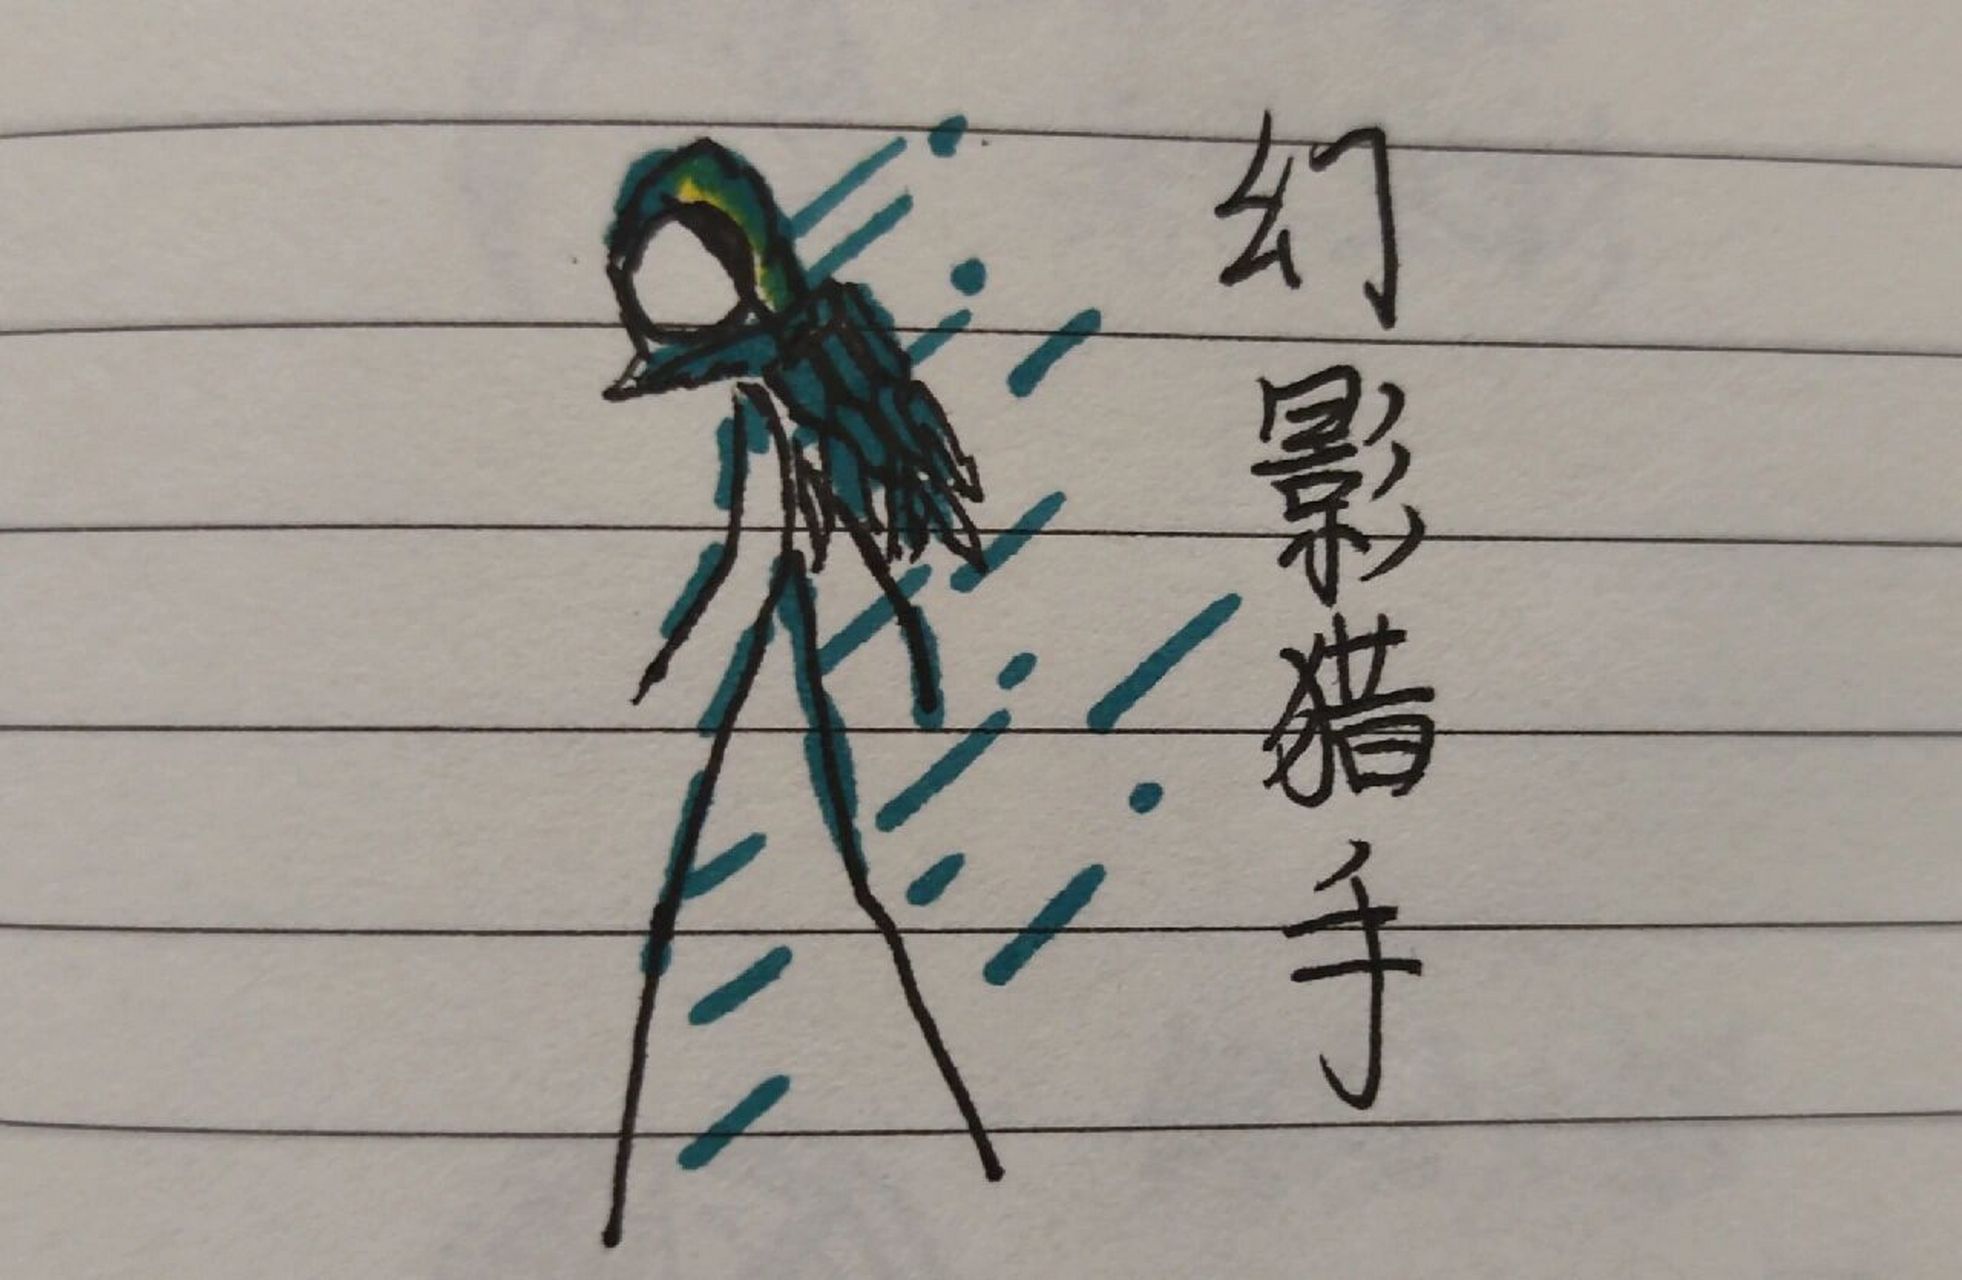 幻影猎手